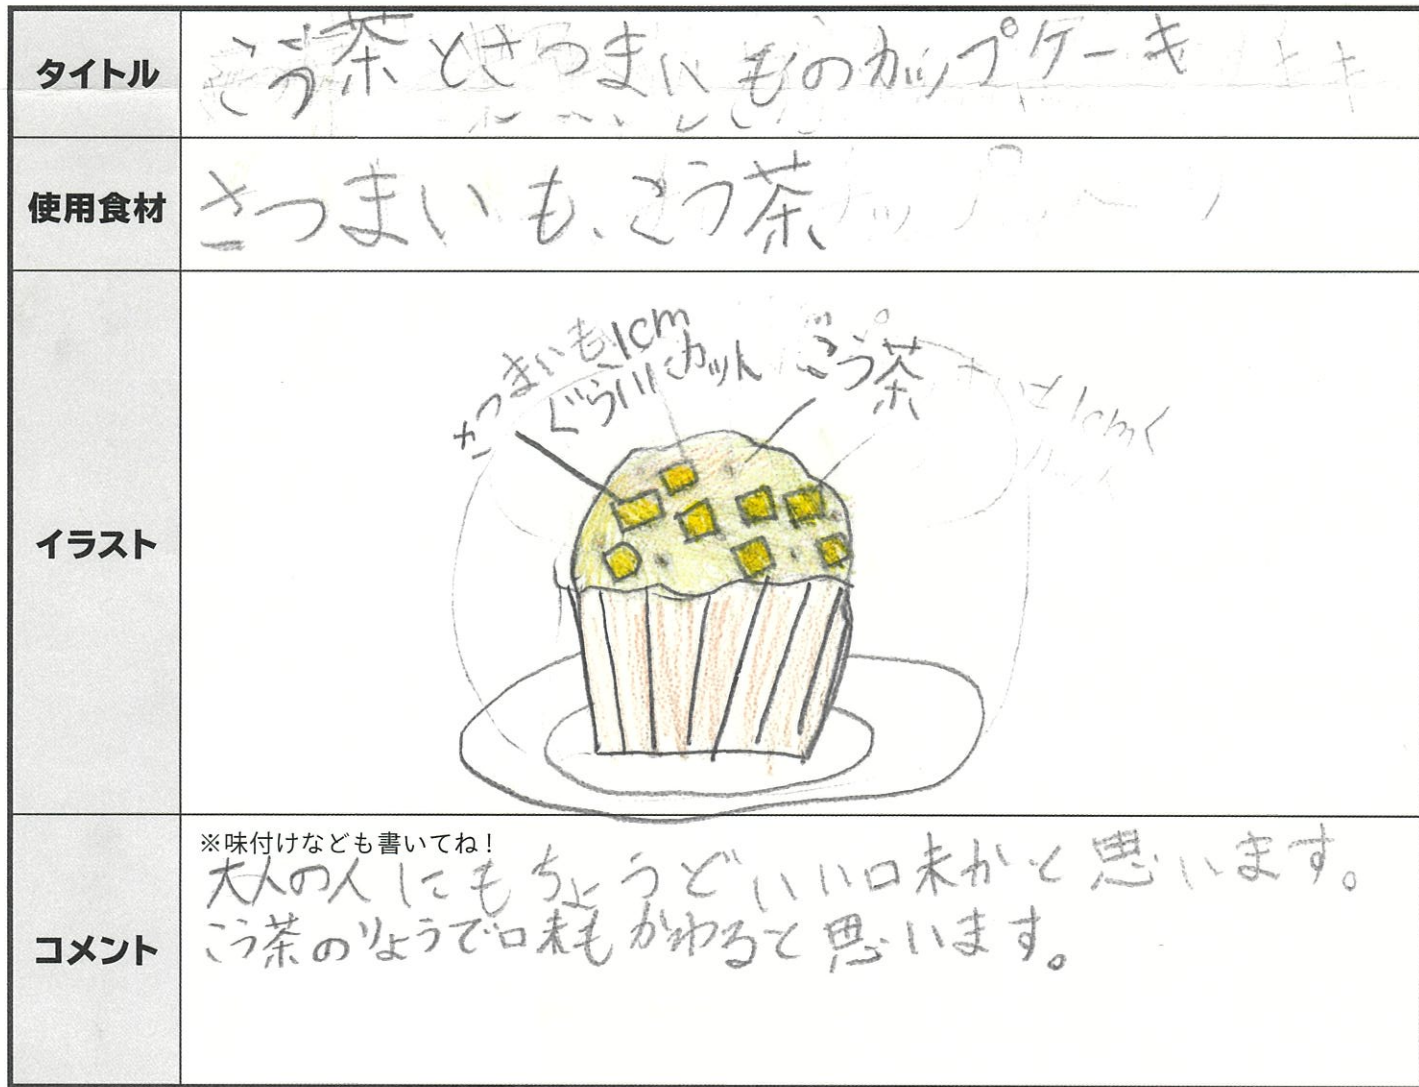 タイトル
こう茶とさつまいものカップケーキ
使用食材
さつまいも、こう茶
イラスト
さつまいも1cm
ぐらいにカット
こう茶
コメント
※味付けなども書いてね!
大人の人にもちょうどいい味かと思います。
こう茶のりょうで味もかわると思います。